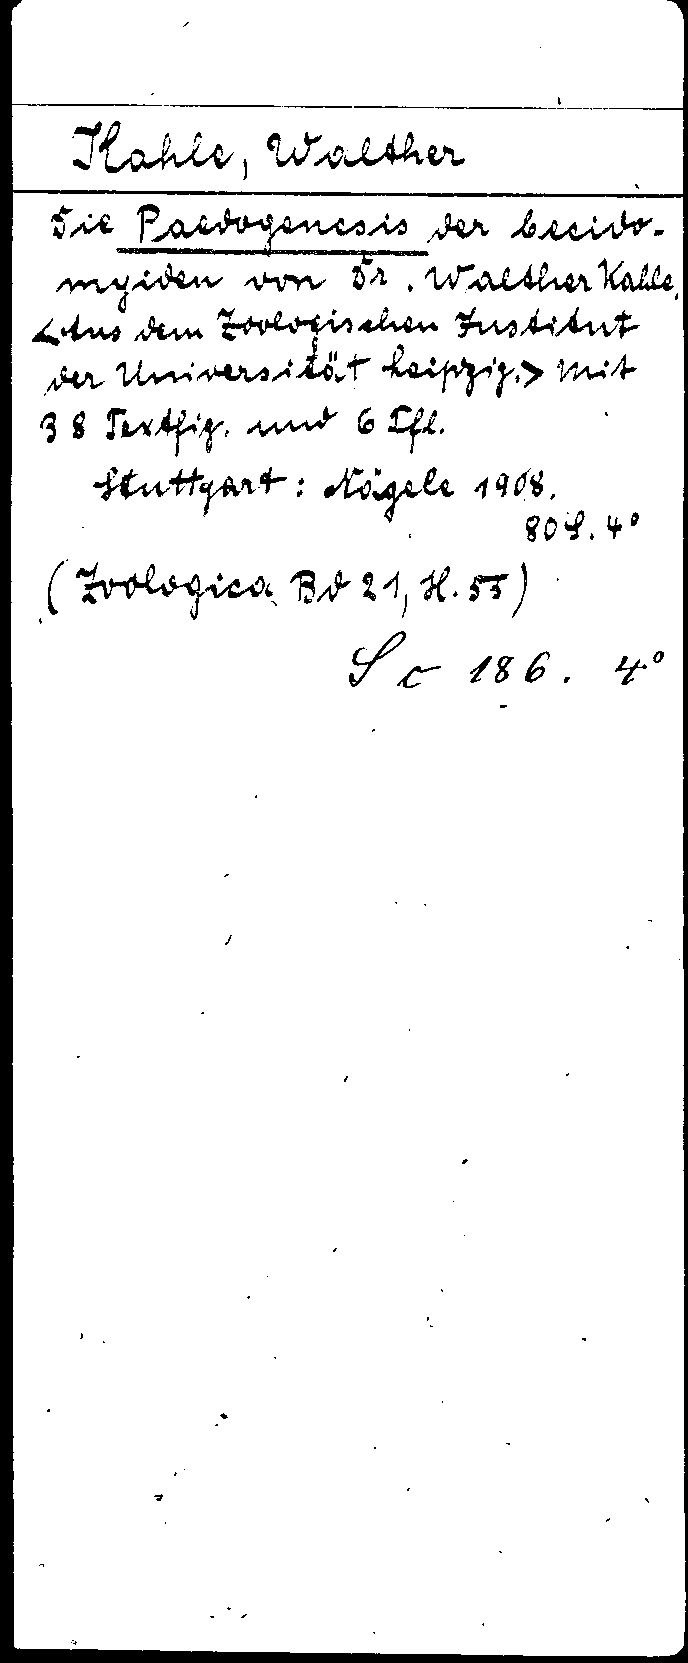 Kahle, Walther
Die Paedogenesis der Cecido-
myiden von Dr. Walther Kahle.
<Aus dem Zoologischen Institut
der Universität Leipzig.> Mit
38 Textfig. und 6 Tfl.
Stuttgart: Nägele 1908.
80 S. 4°
(Zoologica Bd 21, H. 55)
Sc 186. 4°